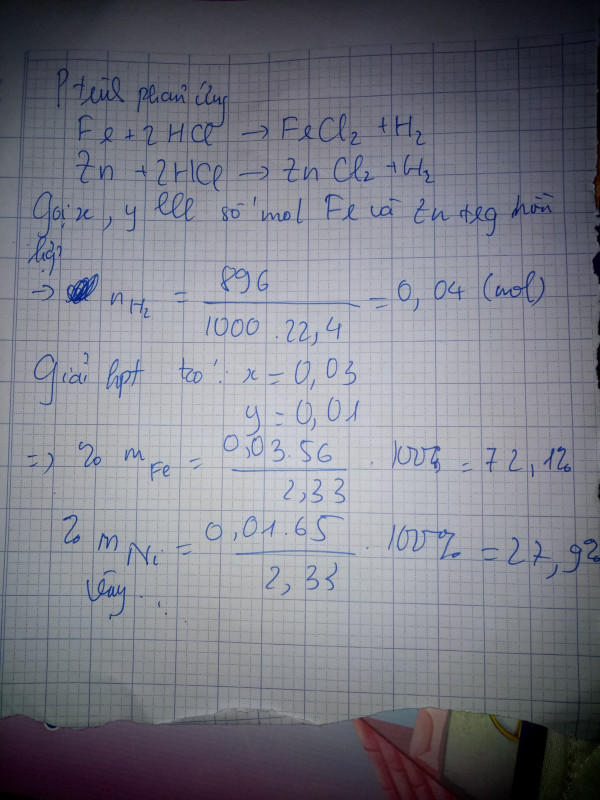 P trình phản ứng
Fe + 2HCl → FeCl2 + H2
Zn + 2HCl → ZnCl2 + H2
Gọi x, y lll số mol Fe và Zn trg hỗn
hợp
→ nH2 = 896 / 1000 . 22,4 = 0,04 (mol)
Giải hpt có: x = 0,03
y = 0,01
=> % mFe = 0,03.56 / 2,33 . 100% = 72,1%
% mNi = 0,01.65 / 2,33 . 100% = 27,9%
Vậy ...